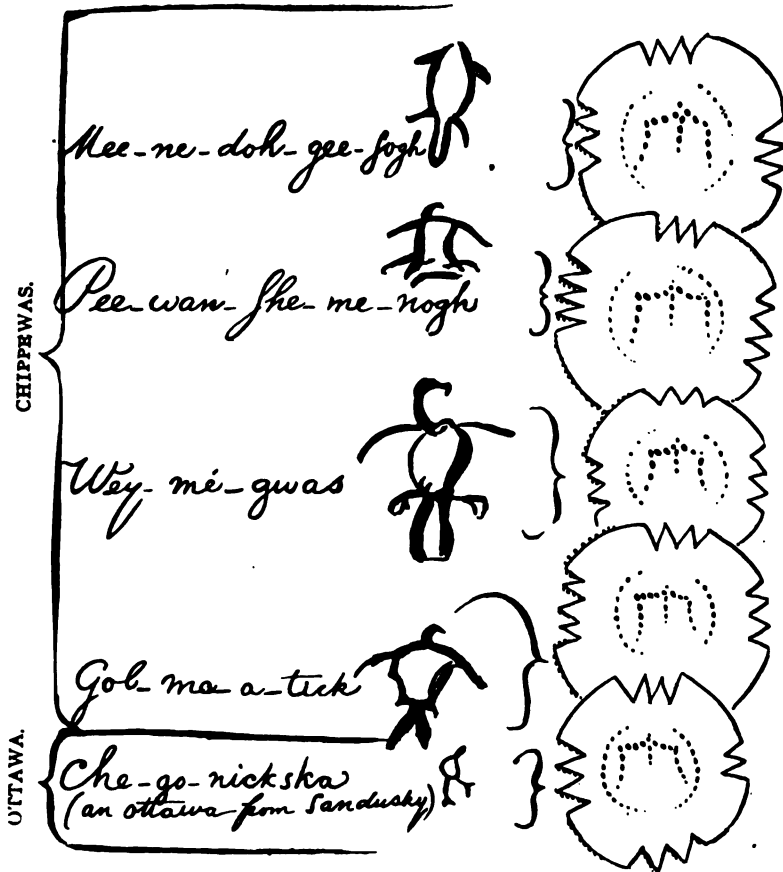 CHIPPEWAS.
Mee-ne-doh-gee-sogh
Pee-wan-she-me-nogh
Wey-mé-gwas
Gob-ma-a-tick
OTTAWA.
Che-go-nickska
(an ottawa from Sandusky)